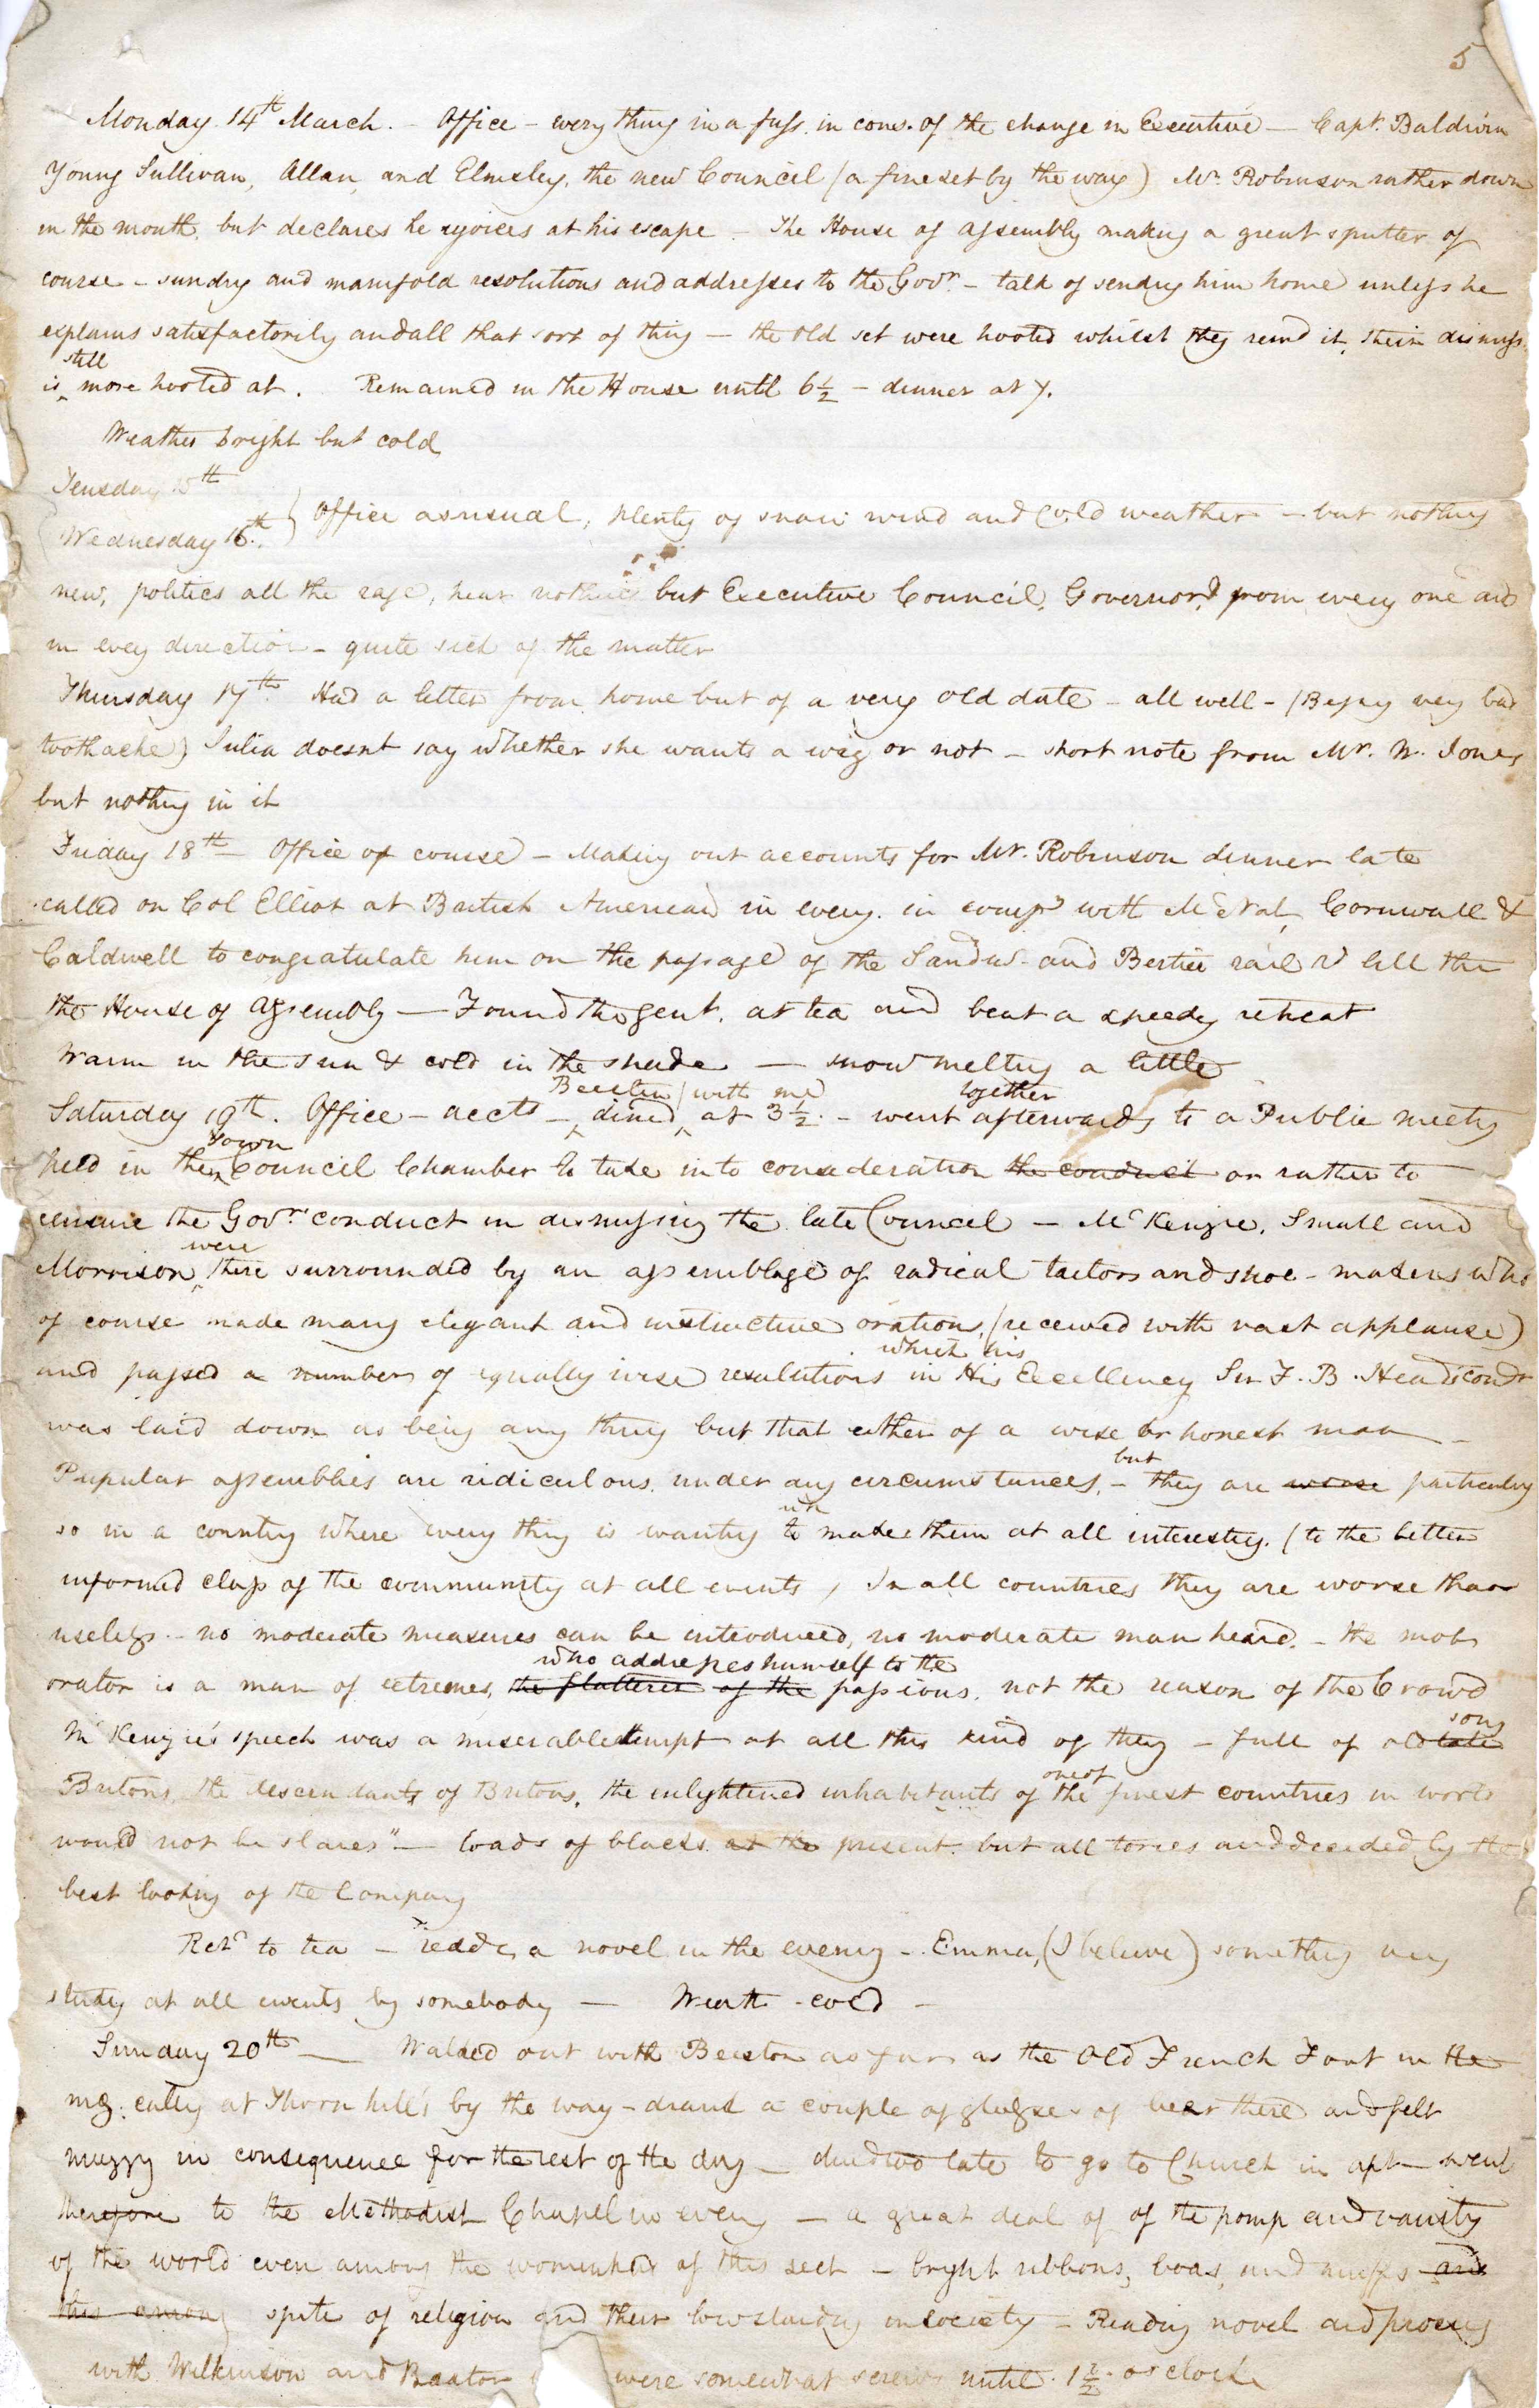 5
Monday 14th March. - Office - every thing in a fuss in cons. of the change in Executive - Capt. Baldwin
Young Sullivan, Allan, and Elmsley, the new Council (a fine set by the way) Mr. Robinson rather down
in the mouth, but declares he rejoices at his escape - The House of Assembly making a great sputter of
course - sundry and manifold resolutions and addresses to the Govr. - talk of sending him home unless he
explains satisfactorily and all that sort of thing - the old set were hooted whilst they remd in, their dismiss.
still
is more hooted at. Remained in the House until 6½ - dinner at 7.
Weather bright but cold
Teusday 15th
Wednesday 16th. } Office as usual, plenty of snow wind and cold weather - but nothing
new, politics all the rage, hear nothing but Executive Council, Governor, from every one and
in every direction - quite sick of the matter
Thursday 17th Had a letter from home but of a very old date - all well - (Bessy very bad
toothache) Julia doesnt say whether she wants a wig or not - short note from Mr. W. Jones
but nothing in it
Friday 18th - Office of course - Making out accounts for Mr. Robinson dinner late
called on Col Elliot at British American in eveng. in compy with McNab, Cornwall &
Caldwell to congratulate him on the passage of the Sandwh and Bertie rail rd bill thro
the House of Assembly - Found the gent. at tea and beat a speedy retreat
Warm in the sun & cold in the shade - snow melting a little
Beeston (with me) together
Saturday 19th. Office - accts - dined at 3½. - went afterwards to a Public meeting
Town
held in the Council Chamber to take into consideration the conduct or rather to
censure the Govrs conduct in dismissing the late Council - McKenzie, Small and
were
Morrison there surrounded by an assemblage of radical tailors and shoe-makers who
of course made many elegant and instructive orations, (received with vast applause)
which his
and passed a number of equally wise resolutions in His Excellency Sir F. B. Head's condt
was laid down as being any thing but that either of a wise or honest man -
but
Pupular assemblies are ridiculous under any circumstances, - they are worse particularly
so in a country where every thing is wanting to make them at all interesting. (to the better
informed class of the community at all events, In all countries they are worse than
useless - no moderate measures can be introduced, no moderate man heard. - the mob
who addresses himself to the
orator is a man of extremes, the flatterer of the passions, not the reason of the Crowd
song
McKenzie's speech was a miserable attempt at all this kind of thing - full of old tale
one of
Britons, the descendants of Britons, the enlightened inhabitants of the finest countries in world
would not be slaves" - loads of blacks at the present, but all tories and decidedly the
best looking of the Company
Retd to tea - "redde, a novel in the evening - Emma, (I believe) something very
at all events by somebody - Weath - cold -
Sunday 20th - Walked out with Beeston as far as the Old French Fort in the
mg. calling at Thornhill's by the way - drank a couple of glasses of beer there and felt
muzzy in consequence for the rest of the day - dined too late to go to Church in aft - went
therefore to the Methodist Chapel in eveng - a great deal of of the pomp and vanity
of the world even among the womenkind of this sect - bright ribbons, boas, and muffs and
this among spite of religion and their low standing in society - Reading novel and prosing
with Wilkinson and were somewhat until 1½. o'clock